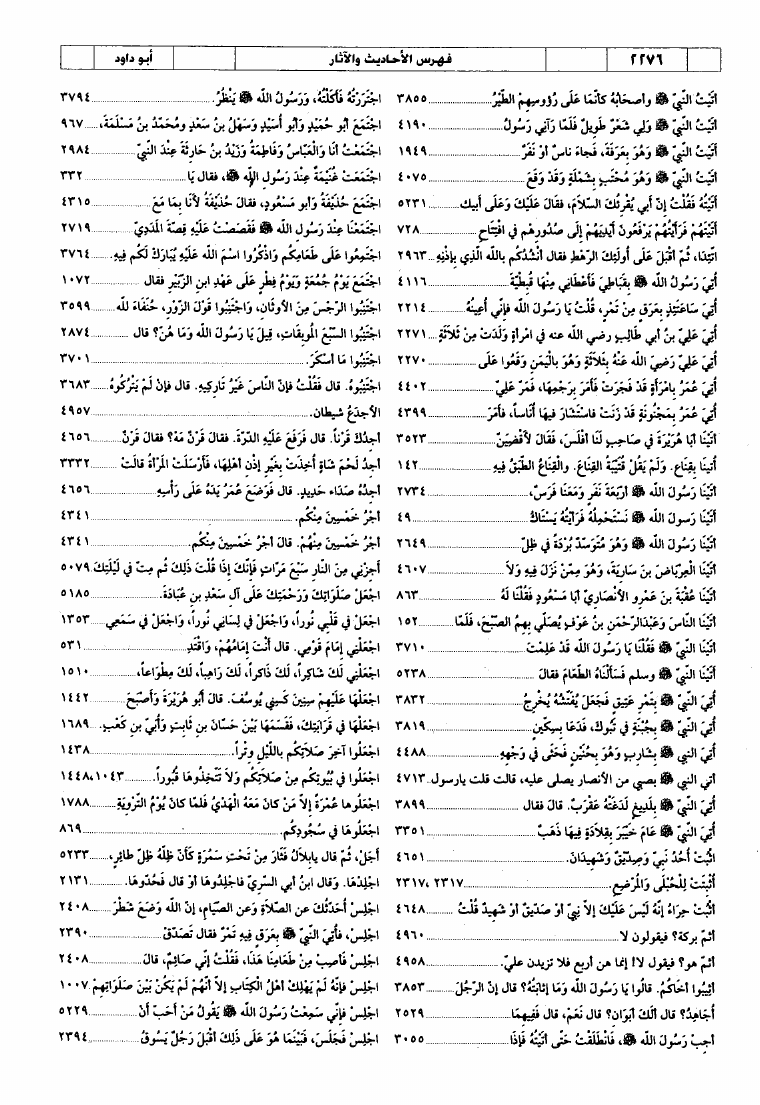 ٢٢٧٦ فهرس الأحاديث والآثار أبو داود
أَتَيْتُ النَّبيَّ ﷺ وأصحابُهُ كأنَّمَا عَلَى رُؤوسِهِمْ الطَّيْرُ ٣٨٥٥
أَتَيْتُ النَّبيَّ ﷺ وَلِي شَعْرٌ طَوِيلٌ فَلَمَّا رَآنِي رَسُولُ ٤١٩٠
أَتَيْتُ النَّبيَّ ﷺ وَهُوَ بِعَرَفَةَ، فَجَاءَ نَاسٌ أَوْ نَفَرٌ ١٩٤٩
أَتَيْتُ النَّبيَّ ﷺ وَهُوَ مُحْتَبٍ بِشَمْلَةٍ وَقَدْ وَقَعَ ٤٠٧٥
أَتَيْتُهُ فَقُلْتُ إنّ أبي يُقْرِئُكَ السَّلَامَ، فَقَالَ عَلَيْكَ وَعَلَى أَبِيكَ ٥٢٣١
أَتَيْتُهُمْ فَرَأَيْتُهُمْ يَرْفَعُونَ أَيْدِيَهُمْ إلَى صُدُورِهم في افْتِتَاحِ ٧٢٨
اتَّئِدَا، ثُمَّ أَقْبَلَ عَلَى أُولَئِكَ الرَّهْطِ فقال أَنْشُدُكُم بالله الَّذِي بإذْنِهِ ٢٩٦٣
أُتِيَ رَسُولُ الله ﷺ بِقَبَاطِيَّ فَأَعْطَانِي مِنْهَا قُبْطِيَّةً ٤١١٦
أُتِيَ سَاعَتَئِذٍ بِعَرَقٍ مِنْ تَمْرٍ، قُلْتُ يَا رَسُولَ الله فَإنِّي أُعِينُهُ ٢٢١٤
أُتِيَ عَلِيُّ بن أبي طَالِبٍ رضي الله عنه في امْرَأةٍ وَلَدَتْ مِنْ ثَلاثَةٍ ٢٢٧١
أُتِيَ عَلِيٌّ رَضِيَ الله عَنْهُ بِثَلاثَةٍ وَهُوَ بالْيَمَنِ وَقَعُوا عَلَى ٢٢٧٠
أُتِيَ عُمَرُ بِامْرَأَةٍ قَدْ فَجَرَتْ فَأَمَرَ بِرَجْمِهَا، فَمَرَّ عَلِيٌّ ٤٤٠٢
أُتِيَ عُمَرُ بِمَجْنُونَةٍ قَدْ زَنَتْ فَاسْتَشَارَ فِيهَا أُنَاساً، فأَمَرَ ٤٣٩٩
أَتَيْنَا أبَا هُرَيْرَةَ في صَاحِبٍ لَنَا أَفْلَسَ، فَقَالَ لأَقْضِيَنَّ ٣٥٢٣
أُتينَا بِقِنَاعٍ. وَلَمْ يَقُلْ قُتَيْبَةُ القِنَاعَ. والْقِنَاعُ الطَّبَقُ فِيهِ ١٤٢
أَتَيْنَا رَسُولَ الله ﷺ أَرْبَعَةَ نَفَرٍ وَمَعَنَا فَرَسٌ، ٢٧٣٤
أَتَيْنَا رَسولَ الله ﷺ نَسْتَحْمِلُهُ فَرَأَيْتُهُ يَسْتَاكُ ٤٩
أَتَيْنَا رَسُولَ الله ﷺ وَهُوَ مُتَوَسِّدٌ بُرْدَةً في ظِلِّ ٢٦٤٩
أَتَيْنَا الْعِرْبَاضَ بنَ سَارِيَةَ، وَهُوَ مِمَّنْ نَزَلَ فِيهِ وَلاَ ٤٦٠٧
أَتَيْنَا عُقْبَةَ بنَ عَمْرٍو الأَنْصَارِيَّ أبَا مَسْعُودٍ فَقُلْنَا لَهُ ٨٦٣
أَتَيْنَا النَّاسَ وَعَبْدَالرَّحْمَنِ بنَ عَوْفٍ يُصَلِّي بهِمُ الصُّبْحَ، فَلَمَّا ١٥٢
أَتَيْنَا النَّبيَّ ﷺ فَقُلْنَا يَا رَسُولَ الله قَدْ عَلِمْتَ ٣٧١٠
أَتَيْنَا النَّبيَّ ﷺ وسلم فَسَأَلْنَاهُ الطَّعَامَ فقالَ ٥٢٣٨
أُتِيَ النَّبيُّ ﷺ بِتَمْرٍ عَتِيقٍ فَجَعَلَ يُفَتِّشُهُ يُخْرِجُ ٣٨٣٢
أُتِيَ النَّبيُّ ﷺ بِجُبْنَةٍ في تَبُوكَ، فَدَعَا بِسِكِّينٍ ٣٨١٩
أُتِيَ النبي ﷺ بِشَارِبٍ وَهُوَ بِحُنَيْنٍ فَحَثَى في وَجْهِهِ ٤٤٨٨
أتي النبي ﷺ بصبي من الأنصار يصلى عليه، قالت قلت يارسول ٤٧١٣
أُتِيَ النَّبيُّ ﷺ بِلَدِيغٍ لَدَغَتْهُ عَقْرَبٌ. قَالَ فقال ٣٨٩٩
أُتِيَ النَّبيُّ ﷺ عَامَ خَيْبَرَ بِقِلاَدَةٍ فِيهَا ذَهَبٌ ٣٣٥١
اثْبُتْ أُحُدُ نَبِيٌّ وَصِدِّيقٌ وَشَهِيدَانِ. ٤٦٥١
أُثْبِتَتْ لِلْحُبْلَى وَالمُرْضِعِ ٢٣١٧، ٢٣١٧
اثْبُتْ حِرَاءُ إنَّهُ لَيْسَ عَلَيْكَ إلاَّ نَبِيٌّ أَوْ صِدِّيقٌ أَوْ شَهِيدٌ قُلْتُ ٤٦٤٨
أثم بركة؟ فيقولون لا ٤٩٦٠
أثم هو؟ فيقول لا! إنما هن أربع فلا تزيدن عليّ. ٤٩٥٨
أَثِيبُوا أخَاكُمْ. قالُوا يَا رَسُولَ الله وَمَا إثَابَتُهُ؟ قال إنّ الرَّجُلَ ٣٨٥٣
أُجَاهِدُ؟ قالَ ألَكَ أَبَوَانِ؟ قالَ نَعَمْ، قالَ فَفِيهِمَا ٢٥٢٩
أَجِبْ رَسُولَ الله ﷺ، فَانْطَلَقْتُ حَتَّى أَتَيْتُهُ فَإذَا ٣٠٥٥
اجْتَرَرْتُهُ فَأَكَلْتُهُ، وَرَسُولُ الله ﷺ يَنْظُرُ. ٣٧٩٤
اجْتَمَعَ أبُو حُمَيْدٍ وَأبو أُسَيْدٍ وَسَهْلُ بنُ سَعْدٍ ومُحَمَّدُ بنُ مَسْلَمَةَ، ٩٦٧
اجْتَمَعْتُ أنَا وَالْعَبَّاسُ وَفَاطِمَةُ وَزَيْدُ بنُ حَارِثَةَ عِنْدَ النَّبيِّ ٢٩٨٤
اجْتَمَعَتْ غُنَيْمَةٌ عِنْدَ رَسُولِ الله ﷺ، فقال يَا ٣٣٢
اجْتَمَعَ حُذَيْفَةُ وأبو مَسْعُودٍ، فقال حُذَيْفَةُ لأَنَا بِمَا مَعَ ٤٣١٥
اجْتَمَعْنَا عِنْدَ رَسُولِ الله ﷺ فَقَصَصْتُ عَلَيْهِ قِصَّةَ المُخْدَجِيّ ٢٧١٩
اجْتَمِعُوا عَلَى طَعَامِكُمْ وَاذْكُرُوا اسْمَ الله عَلَيْهِ يُبَارَكْ لَكُم فِيهِ. ٣٧٦٤
اجْتَمَعَ يَوْمُ جُمُعَةٍ وَيَوْمُ فِطْرٍ عَلَى عَهْدِ ابنِ الزُّبَيْرِ فقال ١٠٧٢
اجْتَنِبُوا الرِّجْسَ مِنَ الأَوْثَانِ، وَاجْتَنِبُوا قَوْلَ الزُّورِ، حُنَفَاءَ لله ٣٥٩٩
اجْتَنِبُوا السَّبْعَ المُوبِقَاتِ، قِيلَ يَا رَسُولَ الله وَمَا هُنَّ؟ قال ٢٨٧٤
اجْتَنِبُوا مَا أَسْكَرَ. ٣٧٠١
اجْتَنِبُوهُ. قال فَقُلْتُ فإنَّ النَّاسَ غَيْرُ تَارِكِيهِ. قال فإنْ لَمْ يَتْرُكُوهُ ٣٦٨٣
الأجدَعُ شيطان. ٤٩٥٧
أَجِدُكَ قَرْناً. قال فَرَفَعَ عَلَيْهِ الدِّرَّةَ. فقالَ قَرْنٌ مَهْ؟ فقالَ قَرْنٌ ٤٦٥٦
أجِدُ لَحْمَ شَاةٍ أُخِذَتْ بِغَيْرِ إذْنِ أَهْلِهَا، فَأَرْسَلَتْ المَرْأةُ قالَتْ ٣٣٣٢
أَجِدُهُ صَدَاءَ حَدِيدٍ. قال فَوَضَعَ عُمَرُ يَدَهُ عَلَى رَأْسِهِ ٤٦٥٦
أجْرُ خَمْسِينَ مِنْكُم. ٤٣٤١
أَجْرُ خَمْسِينَ مِنْهُمْ. قال أجْرُ خَمْسِينَ مِنْكُم. ٤٣٤١
أَجِرْنِي مِنَ النَّارِ سَبْعَ مَرّاتٍ فإنَّكَ إذَا قُلْتَ ذَلِكَ ثُم مِتَّ في لَيْلَتِكَ ٥٠٧٩
اجْعَلْ صَلَوَاتِكَ وَرَحْمَتِكَ عَلَى آلِ سَعْدِ بنِ عُبَادَةَ. ٥١٨٥
اجْعَلْ في قَلْبِي نُوراً، وَاجْعَلْ فِي لِسَانِي نُوراً، وَاجْعَلْ فِي سَمْعِي ١٣٥٣
اجْعَلْنِي إمَامَ قَوْمِي. قال أنْتَ إمَامُهُمْ، وَاقْتَدِ ٥٣١
اجْعَلْنِي لَكَ شَاكِراً، لَكَ ذَاكِراً، لَكَ رَاهِباً، لَكَ مِطْوَاعاً، ١٥١٠
اجْعَلْهَا عَلَيْهِمْ سِنِينَ كَسِنِي يُوسُفَ. قالَ أَبُو هُرَيْرَةَ وَأَصْبَحَ ١٤٤٢
اجْعَلْهَا في قَرَابَتِكَ، فَقَسَمَهَا بَيْنَ حَسَّانَ بنِ ثَابِتٍ وَأُبَيِّ بنِ كَعْبٍ. ١٦٨٩
اجْعَلُوا آخِرَ صَلاَتِكُم باللَّيْلِ وتْراً. ١٤٣٨
اجْعَلُوا في بُيُوتِكُم مِنْ صَلاَتِكُم وَلاَ تَتَّخِذُوهَا قُبُوراً. ١٠٤٣، ١٤٤٨
اجْعَلُوها عُمْرَةً إلاَّ مَنْ كانَ مَعَهُ الْهَدْيُ فَلمّا كانَ يَوْمُ التَّرْوِيَةِ ١٧٨٨
اجْعَلُوهَا في سُجُودِكُم. ٨٦٩
أجَلْ، ثُمَّ قال يابِلاَلُ فَثَارَ مِنْ تَحْتِ سَمُرَةٍ كَأَنَّ ظِلَّهُ ظِلُّ طَائِرٍ، ٥٢٣٣
اجْلِدْهَا. وَقال ابنُ أبي السَّرِيِّ فاجْلِدُوهَا أوْ قال فَحُدُّوهَا. ٢١٣١
اجْلِسْ أُحَدِّثْكَ عن الصَّلاَةِ وَعن الصِّيَامِ، إنّ الله وَضَعَ شَطْرَ ٢٤٠٨
اجْلِسْ، فَأُتِيَ النَّبيُّ ﷺ بِعَرَقٍ فِيهِ تَمْرٌ فقال تَصَدَّقْ ٢٣٩٠
اجْلِسْ فَأَصِبْ مِنْ طَعَامِنَا هَذَا، فَقُلْتُ إنِّي صَائِمٌ، قال ٢٤٠٨
اجْلِسْ فإنَّهُ لَمْ يَهْلِكْ أَهْلُ الْكِتَابِ إلاّ أَنَّهُمْ لَمْ يَكُنْ بَيْنَ صَلَوَاتِهِمْ ١٠٠٧
اجْلِسْ فإنِّي سَمِعْتُ رَسُولَ الله ﷺ يَقُولُ مَنْ أَحَبَّ أنْ ٥٢٢٩
اجْلِسْ فَجَلَسَ، فَبَيْنَمَا هُوَ عَلَى ذَلِكَ أَقْبَلَ رَجُلٌ يَسُوقُ ٢٣٩٤